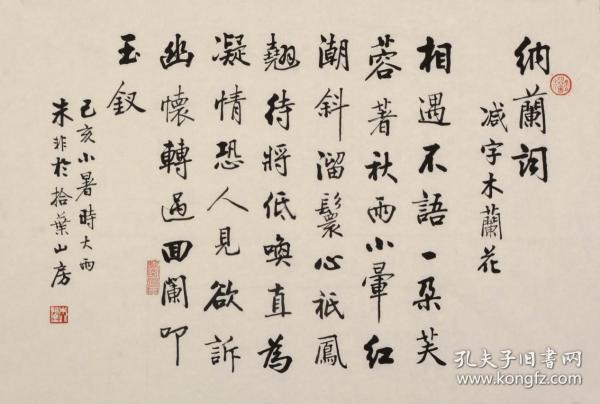 納蘭詞
減字木蘭花
相遇不語一朵芙
蓉著秋雨小暈紅
潮斜溜鬟心祇鳳
翹待將低喚直為
凝情恐人見欲訴
幽懷轉過回闌叩
玉釵
己亥小暑時大雨
朱非於拾葉山房
孔夫子旧书网
www.kongfz.com